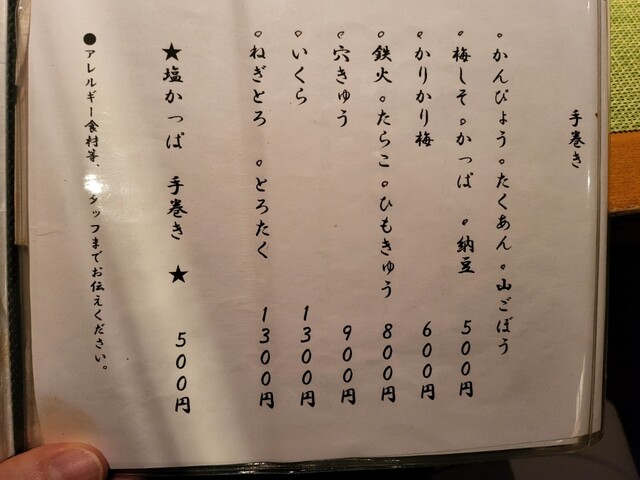 手巻き
。かんぴょう。たくあん。山ごぼう
。梅しそ。かっぱ 。納豆 500円
。かりかり梅 600円
。鉄火。たらこ。ひもきゅう 800円
。穴きゅう 900円
。いくら 1300円
。ねぎとろ 。とろたく 1300円
★塩かっぱ 手巻き ★ 500円
●アレルギー食材等、タッフまでお伝えください。